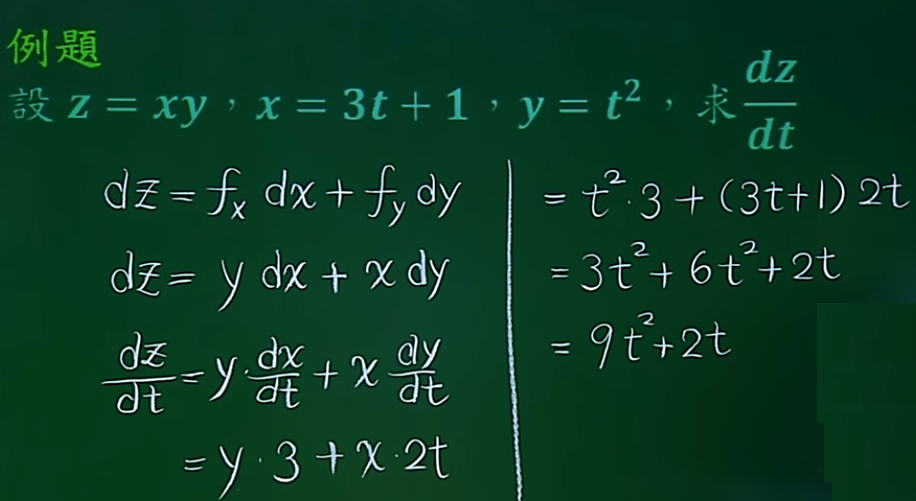 例題
設 z = xy，x = 3t + 1，y = t²，求 dz/dt
dz = fₓ dx + f_y dy
dz = y dx + x dy
dz/dt = y · dx/dt + x dy/dt
= y · 3 + x · 2t
= t² · 3 + (3t+1) 2t
= 3t² + 6t² + 2t
= 9t² + 2t